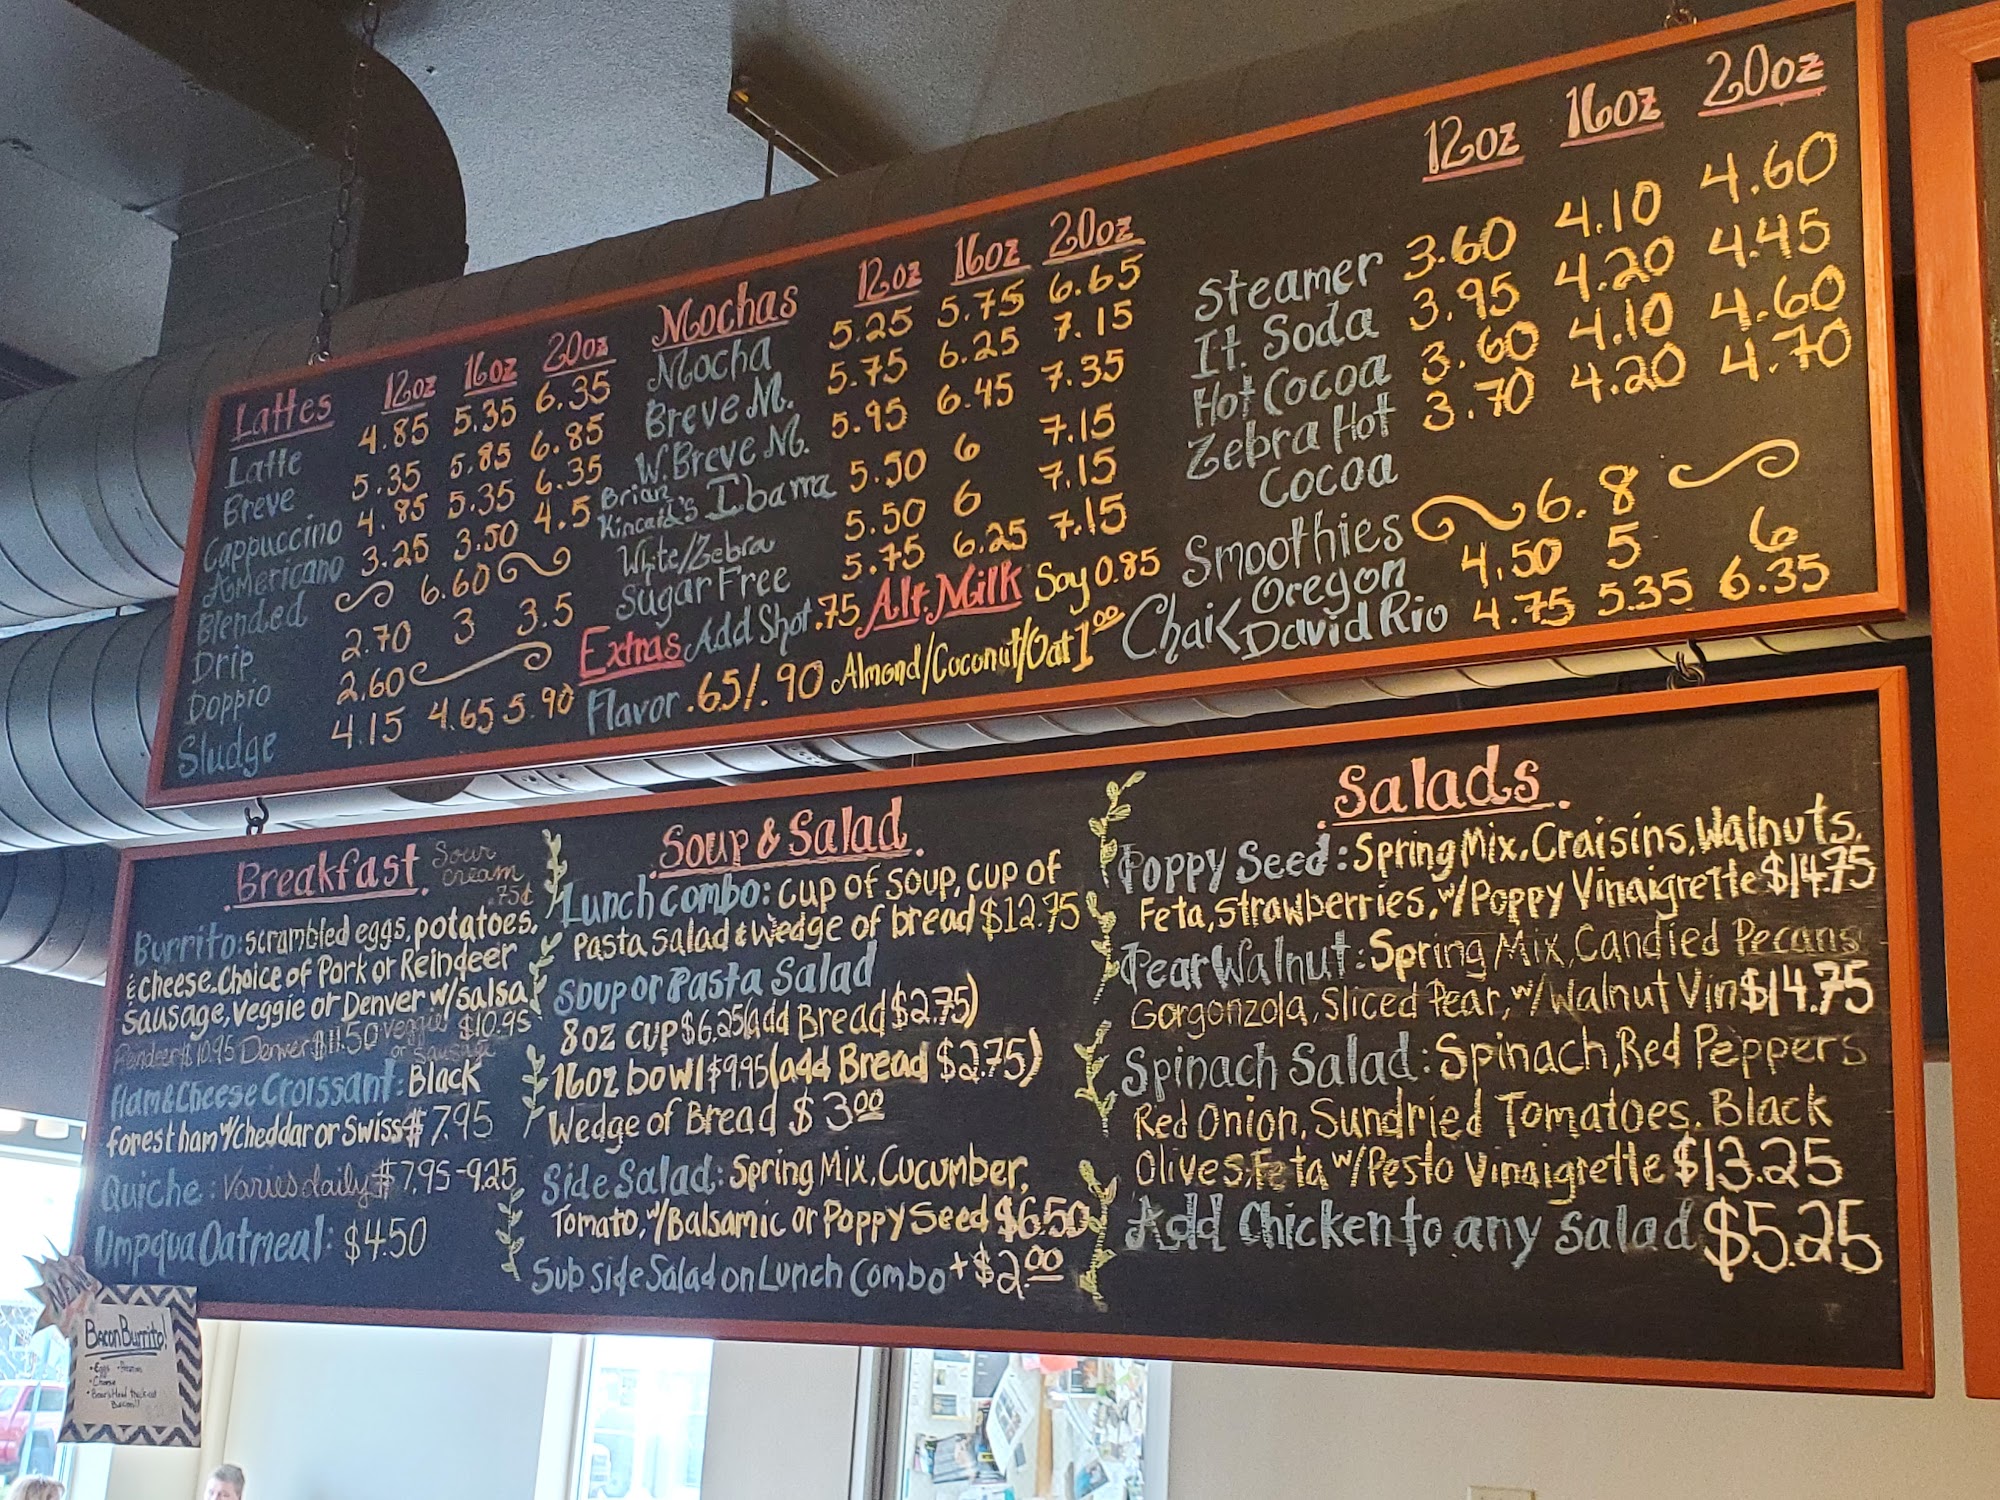 Lattes 12oz 16oz 20oz
Latte 4.85 5.35 6.35
Breve 5.35 5.85 6.85
Cappuccino 4.85 5.35 6.35
Americano 3.25 3.50 4.5
Blended 6.60
Drip 2.70 3 3.5
Doppio 2.60
Sludge 4.15 4.65 5.90
Mochas 12oz 16oz 20oz
Mocha 5.25 5.75 6.65
Breve M. 5.75 6.25 7.15
W. Breve M. 5.95 6.45 7.35
Brian Kincaid's Ibarra 5.50 6 7.15
White/Zebra 5.50 6 7.15
Sugar Free 5.75 6.25 7.15
Extras Add Shot .75
Flavor .65/.90
Alt. Milk Soy 0.85
Almond/Coconut/Oat 1.00
12oz 16oz 20oz
Steamer 3.60 4.10 4.60
It. Soda 3.95 4.20 4.45
Hot Cocoa 3.60 4.10 4.60
Zebra Hot 3.70 4.20 4.70
Cocoa
Smoothies 6.8
Chai < Oregon 4.50 5 6
David Rio 4.75 5.35 6.35
Breakfast
Sour
cream
.75¢
Burrito: scrambled eggs, potatoes,
& cheese. Choice of Pork or Reindeer
Sausage, Veggie or Denver w/ Salsa
Reindeer $10.95 Denver $11.50 Veggie or Sausage $10.95
Ham & Cheese Croissant: Black
forest ham w/ Cheddar or Swiss $7.95
Quiche: Varies daily $7.95-9.25
Umpqua Oatmeal: $4.50
Soup & Salad
Lunch Combo: Cup of soup, cup of
Pasta Salad & Wedge of bread $12.75
Soup or Pasta Salad
8oz cup $6.25 (add Bread $2.75)
16oz bowl $9.95 (add Bread $2.75)
Wedge of Bread $3.00
Side Salad: Spring Mix, Cucumber,
Tomato, w/ Balsamic or Poppy Seed $6.50
Sub side Salad on Lunch Combo + $2.00
Salads
Poppy Seed: Spring Mix, Craisins, Walnuts,
Feta, Strawberries, w/ Poppy Vinaigrette $14.75
Pear Walnut: Spring Mix, Candied Pecans
Gorgonzola, Sliced Pear, w/ Walnut Vin $14.75
Spinach Salad: Spinach, Red Peppers
Red Onion, Sundried Tomatoes, Black
Olives, Feta w/ Pesto Vinaigrette $13.25
Add Chicken to any salad $5.25
NEW
Bacon Burrito!
• Eggs
• Cheese